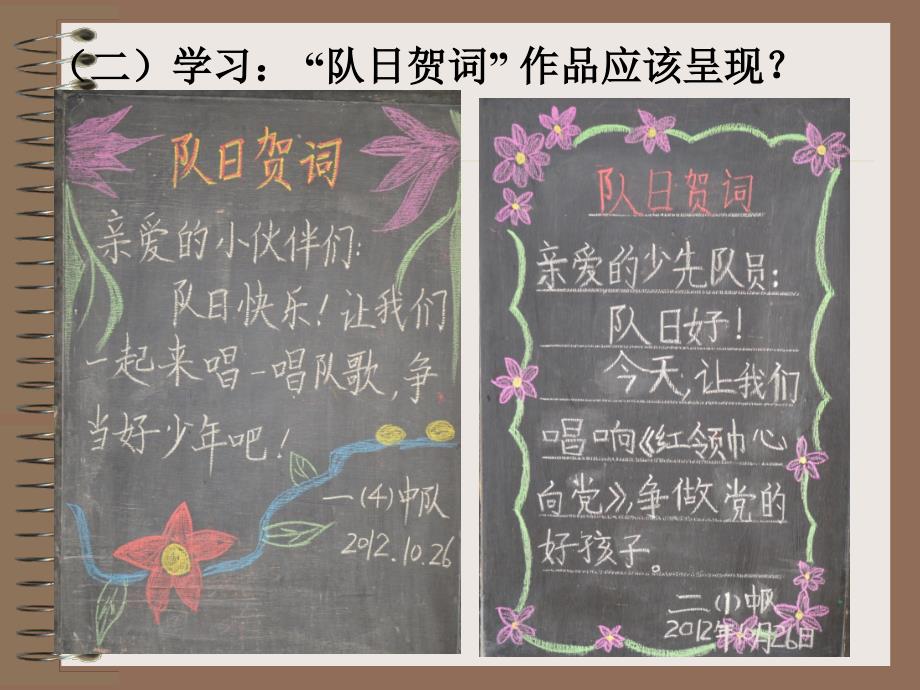 （二）学习：“队日贺词”作品应该呈现？
队日贺词
亲爱的小伙伴们：
队日快乐！让我们
一起来唱一唱队歌，争
当好少年吧！
一（4）中队
2012.10.26
队日贺词
亲爱的少先队员：
队日好！
今天，让我们
唱响《红领巾心
向党》，争做党的
好孩子。
二（1）中队
2012年 月26日